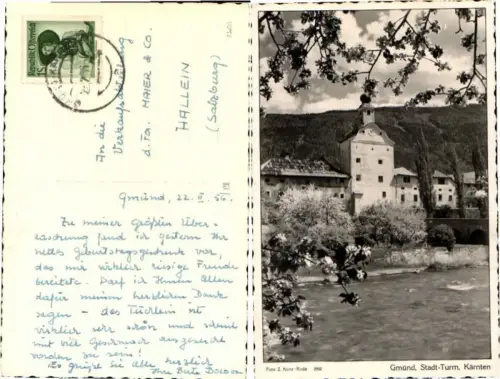 An die
Verkaufsabteilung
d. Fa. MAIER & Co.
HALLEIN
(Salzburg)
Gmünd, 22. 55.
Zu meiner Größten Über-
raschung fand ich gestern Ihr
nettes Geburtstagsgeschenk vor,
das mir wirklich riesige Freude
bereitete. Darf ich Ihnen allen
dafür meinen herzlichen Dank
sagen - das Tüchlein ist
wirklich sehr schön und scheint
mit viel Geschmack ausgesucht
worden zu sein!
Es grüßt Sie alle herzlich
Ihre
Gmünd, Stadt-Turm, Kärnten